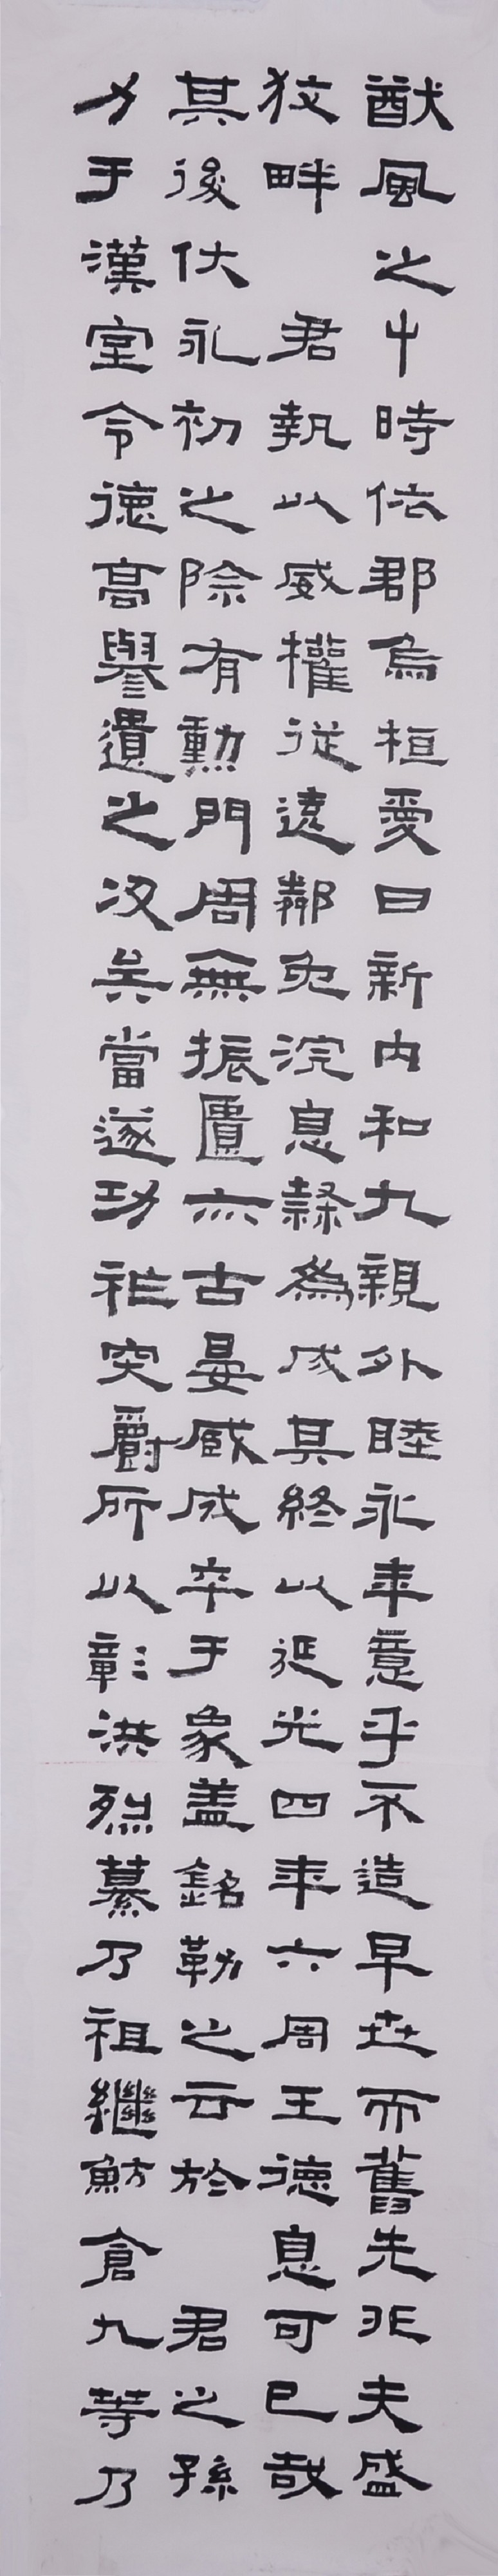 猷風之中時依郡烏桓爰曰新内和九親外睦永年意乎不造早世而舊先非夫盛
狡畔君執以威權従遠鄰宛浣息隸為成其終以延光四年六周王德息可已哉
其後伏永初之際有勳門周無振匱亦古晏臧成卒于象盖銘勒之云於君之孫
力于漢室令德高譽遺之汲矣當遂功祚突爵所以彰洪烈纂乃祖繼魴倉九等乃